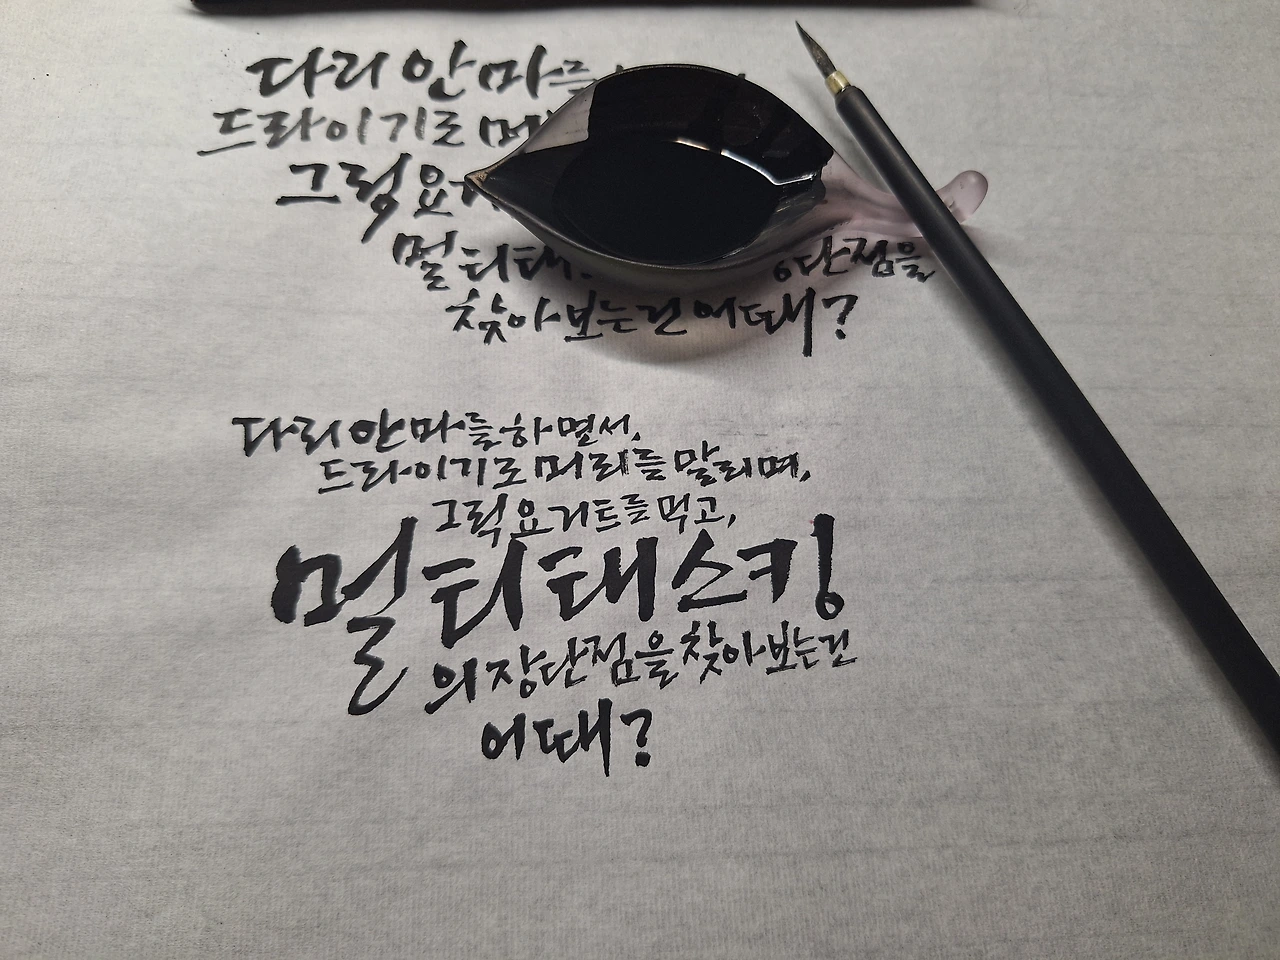 다리 안마를
드라이기로
그릭요
멀티태
단점을
찾아보는건 어때?
다리 안마를 하면서,
드라이기로 머리를 말리며,
그릭요거트를 먹고,
멀티태스킹
의 장단점을 찾아보는건
어때?